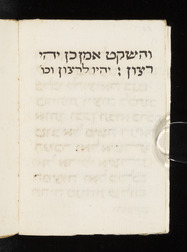 והשקט אמן כן יהי
רצון : יהיו לרצון וכו